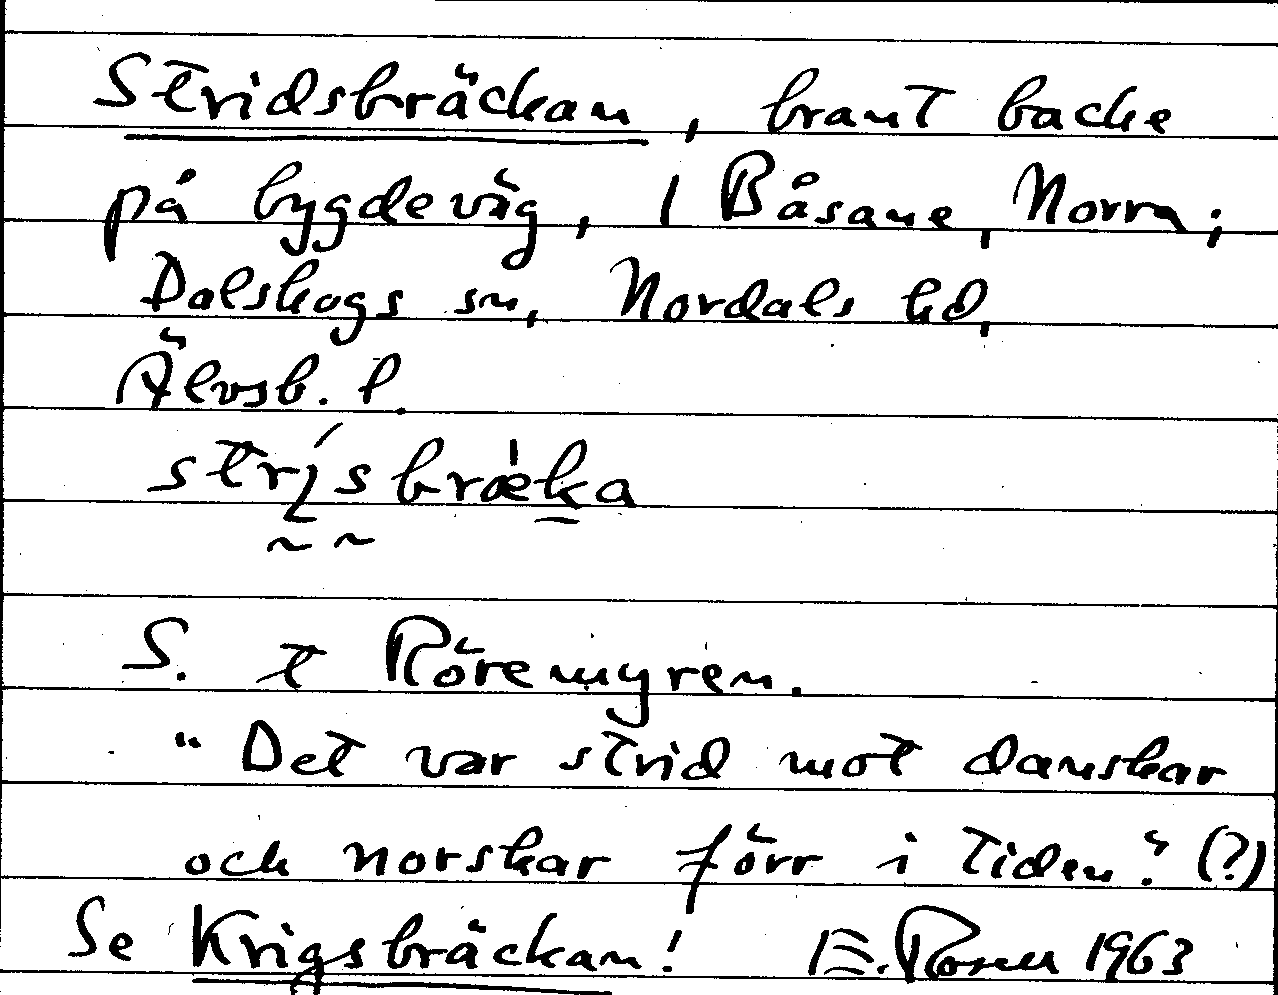 Stridsbräckan, brant backe
på bygdeväg, i Båsane, Norra;
Dalskogs sn, Nordals hd,
Älvsb. l.
strı́sbræ̍ka
S. t Röremyren.
"Det var strid mot danskar
och norskar förr i tiden." (?)
Se Krigsbräckan! E. Rosell 1963